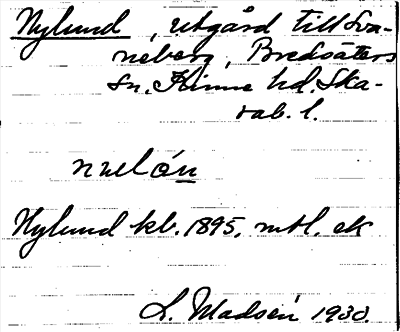 Nylund, utgård till Sva-
neberg, Bredsäters
sn, Kinne hd. Ska-
rab. l.
nulón
Nylund kb. 1895, mtl. ek
L. Madsén 1930.